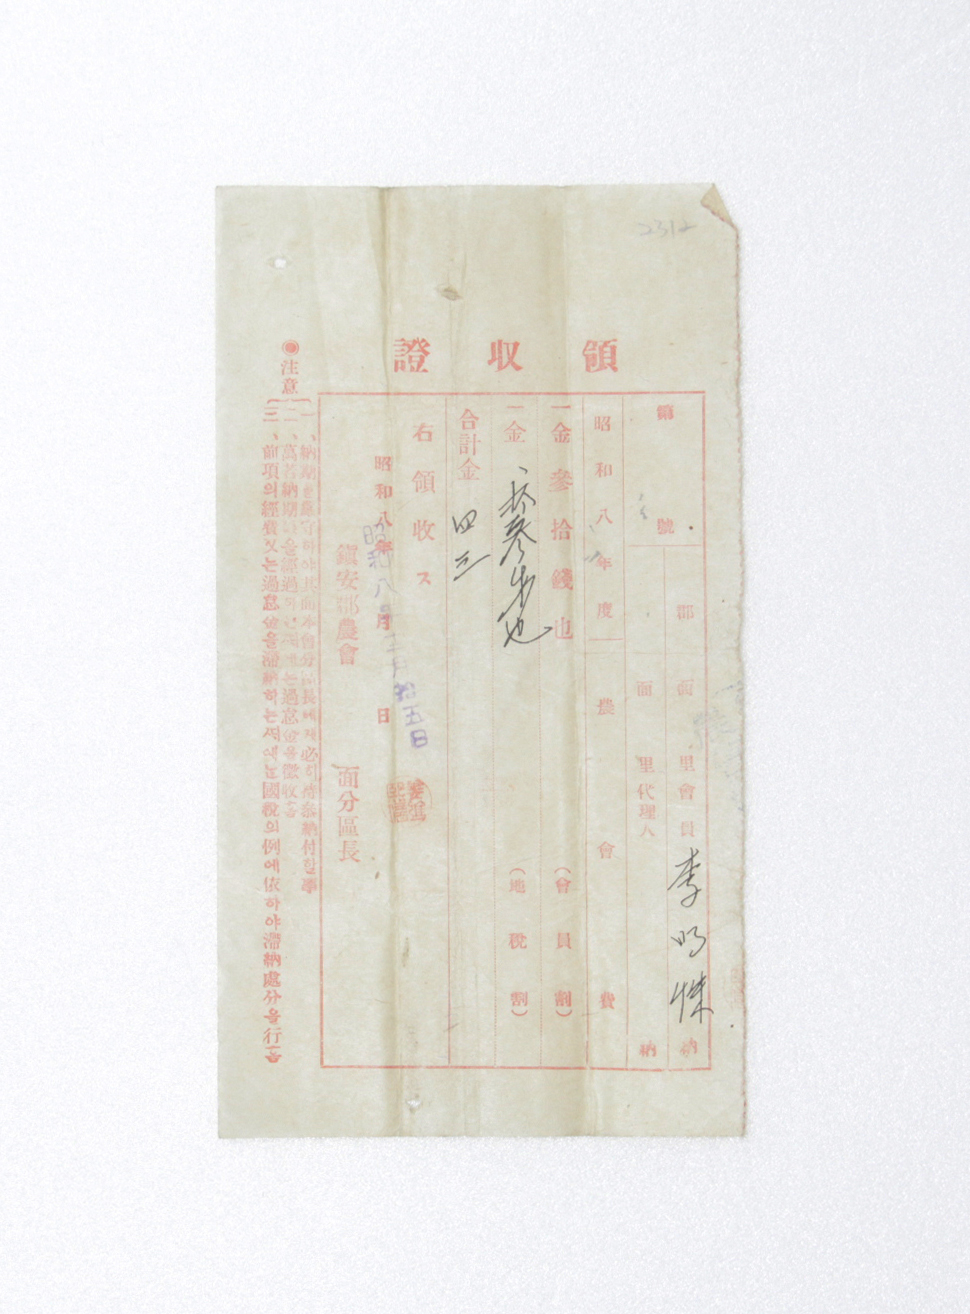 2312
領收證
第 號
郡 面 里 會員 李明傑 納
面 里 代理人 納
昭和八年度 農會費
一金參拾錢也 (會員割)
一金 拾參戔也 (地稅割)
合計金 四三
右領收ス
昭和八年 月 日
昭和八年三月拾五日
鎭安郡農會 面分區長
◉注意
一、納期를嚴守하야其面本會分區長에게必히持參納付할事
二、萬若納期日을經過하 는過怠金을徵收홈
三、前項의經費又는過怠金을滯納하는時에는國稅의例에依하야滯納處分을行홈